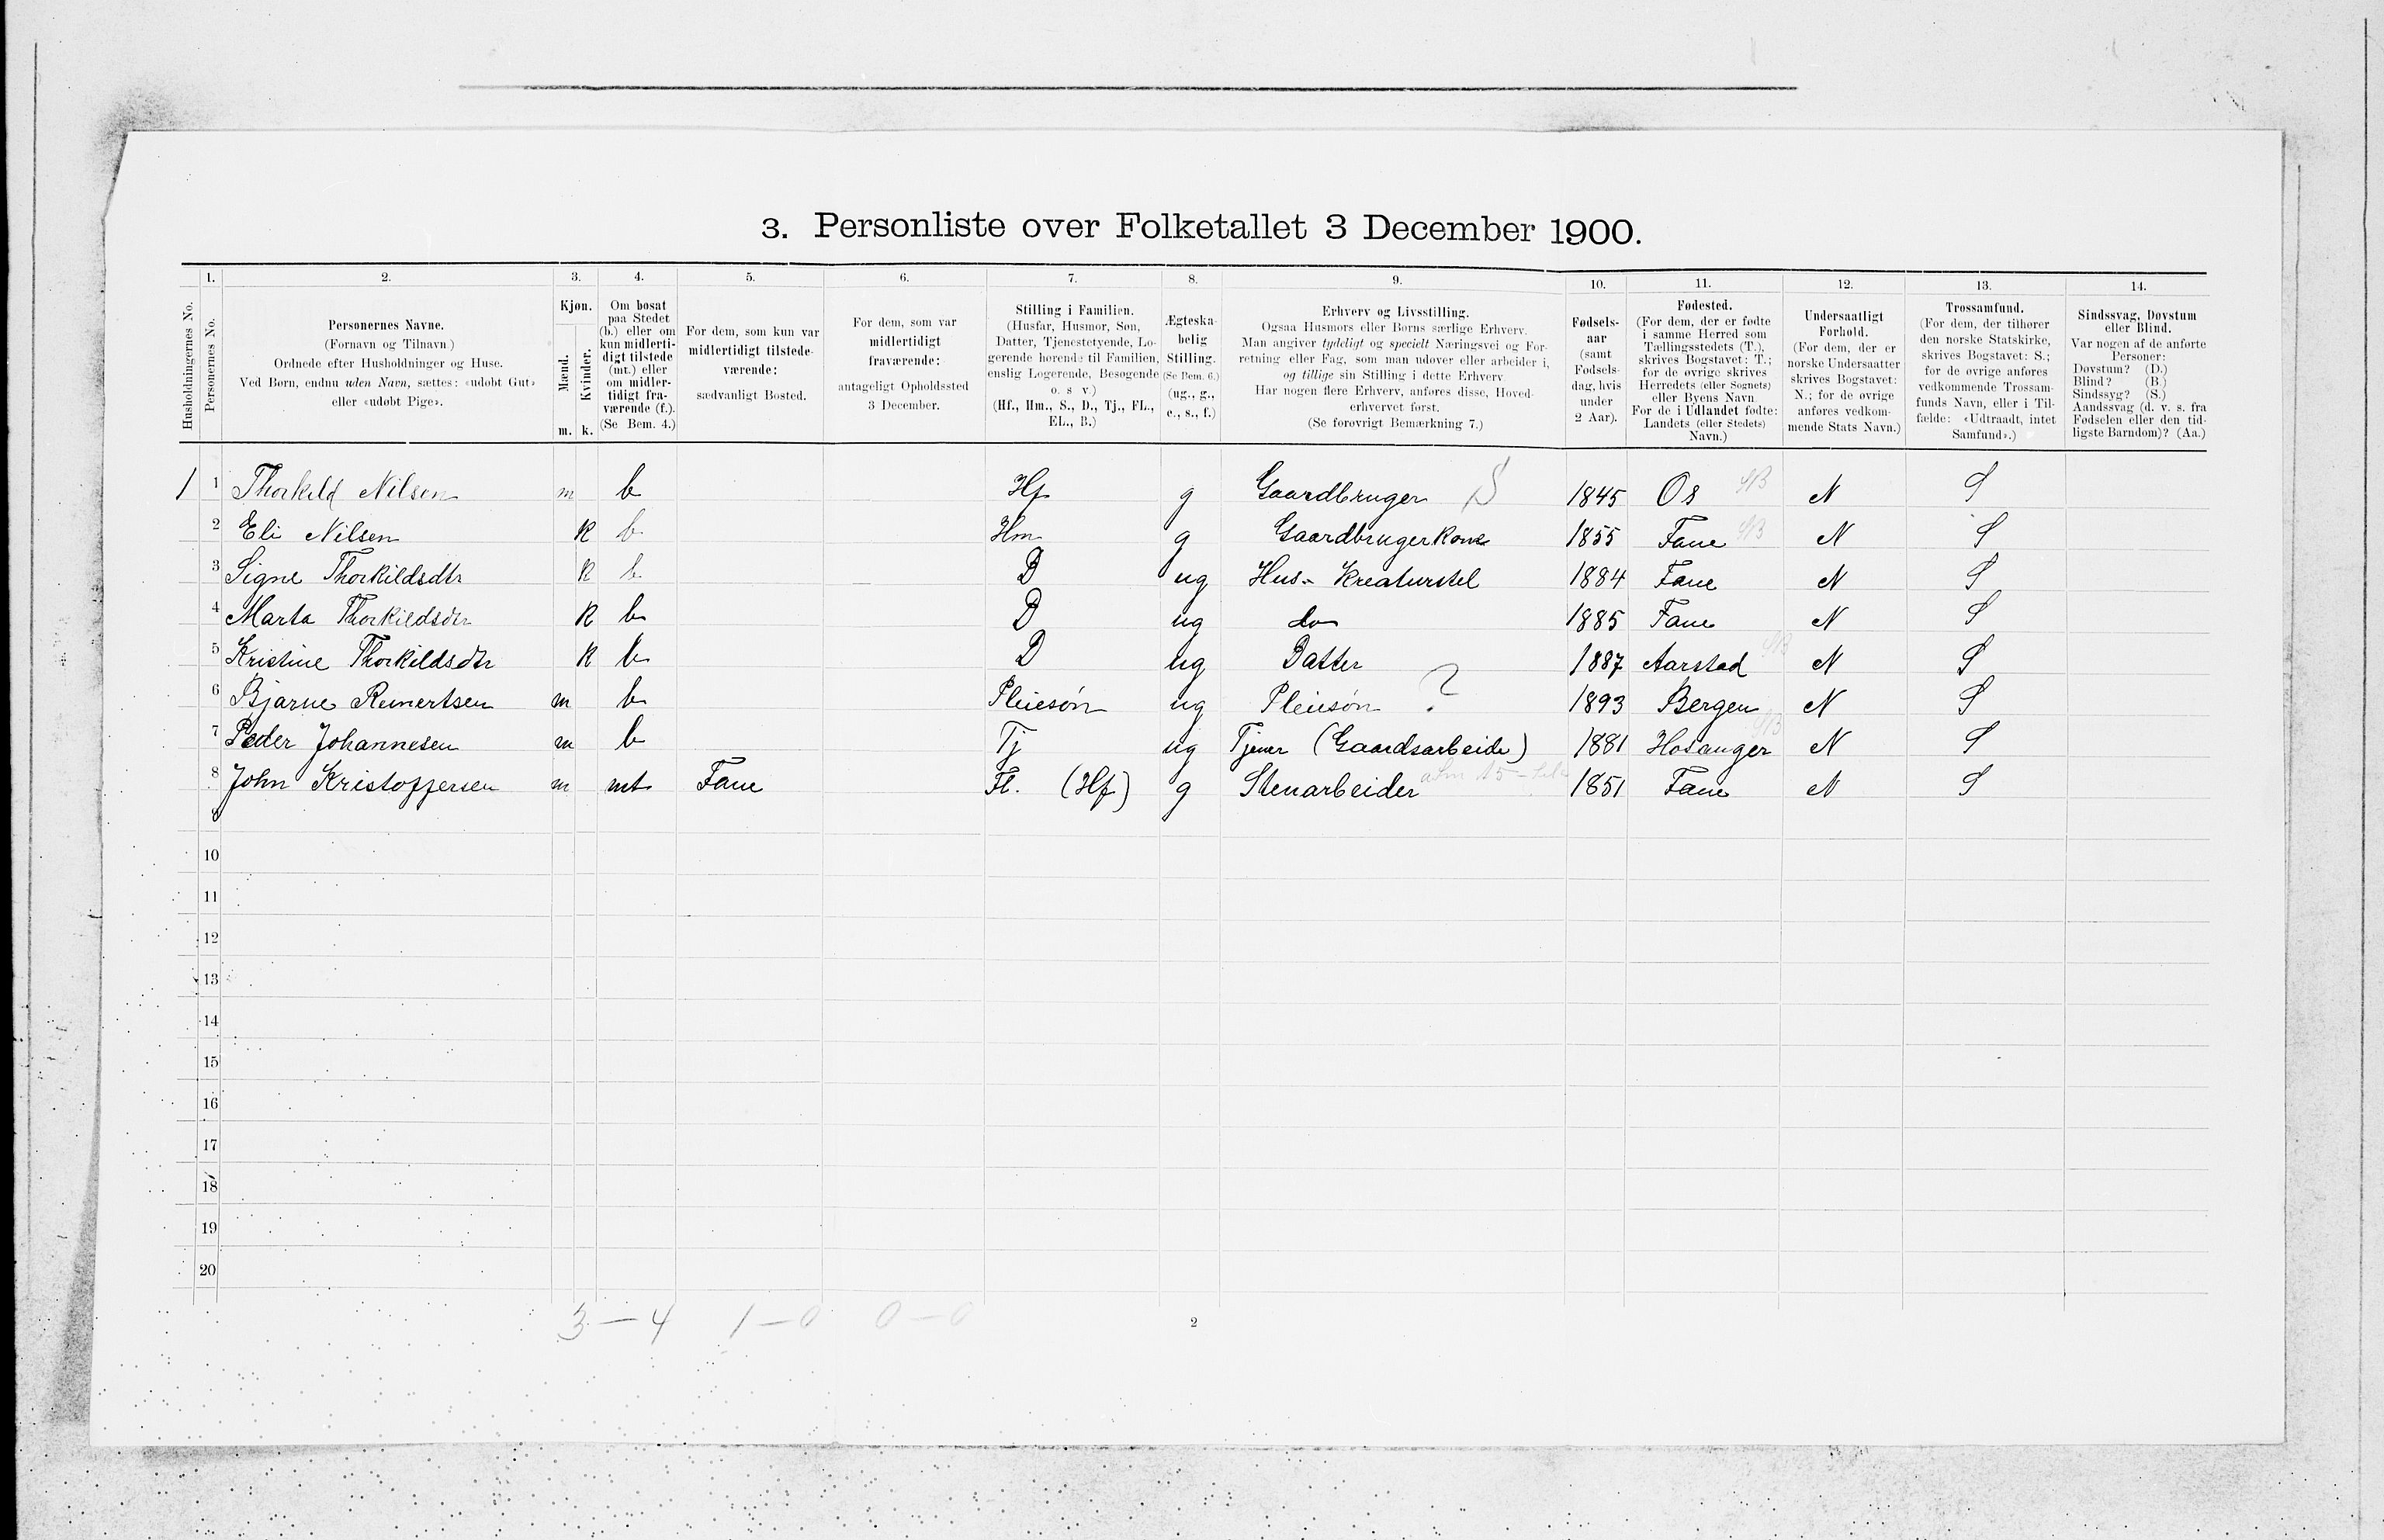 3. Personliste over Folketallet 3 December 1900.
1. 2. 3. 4. 5. 6. 7. 8. 9. 10. 11. 12. 13. 14.
Husholdningernes No.
Personernes No.
Personernes Navne.
(Fornavn og Tilnavn.)
Ordnede efter Husholdninger og Huse.
Ved Børn, endnu uden Navn, sættes: «udøbt Gut»
eller «udøbt Pige».
Kjøn.
Mænd.
Kvinder.
m. k.
Om bosat
paa Stedet
(b.) eller om
kun midlerti-
digt tilstede
(mt.) eller
om midler-
tidigt fra-
værende (f.).
(Se Bem. 4.)
For dem, som kun var
midlertidigt tilstede-
værende:
sædvanligt Bosted.
For dem, som var
midlertidigt
fraværende:
antageligt Opholdssted
3 December.
Stilling i Familien.
(Husfar, Husmor, Søn,
Datter, Tjenestetyende, Lo-
gerende hørende til Familien,
enslig Logerende, Besøgende
o. s v.)
(Hf., Hm., S., D., Tj., FL.,
EL., B.)
Ægteska-
belig
Stilling.
(Se Bem. 6.)
(ug., g.,
e., s., f.)
Erhverv og Livsstilling.
Ogsaa Husmors eller Børns særlige Erhverv.
Man angiver tydeligt og specielt Næringsvei og For-
retning eller Fag, som man udøver eller arbeider i,
og tillige sin Stilling i dette Erhverv.
Har nogen flere Erhverv, anføres disse, Hoved-
erhvervet først.
(Se forøvrigt Bemærkning 7.)
Fødsels-
aar
(samt
Fødsels-
dag, hvis
under
2 Aar).
Fødested.
(For dem, der er fødte
i samme Herred som
Tællingsstedets (T.),
skrives Bogstavet: T.;
for de øvrige skrives
Herredets (eller Sognets)
eller Byens Navn
For de i Udlandet fødte:
Landets (eller Stedets)
Navn.)
Undersaatligt
Forhold.
(For dem, der er
norske Undersaatter
skrives Bogstavet:
N.; for de øvrige
anføres vedkom-
mende Stats Navn.)
Trossamfund.
(For dem, der tilhører
den norske Statskirke,
skrives Bogstavet: S.;
for de øvrige anføres
vedkommende Trossam-
funds Navn, eller i Til-
fælde: «Udtraadt, intet
Samfund».)
Sindssvag, Døvstum
eller Blind.
Var nogen af de anførte
Personer:
Døvstum? (D.)
Blind? (B.)
Sindssyg? (S.)
Aandssvag (d. v. s. fra
Fødselen eller den tid-
ligste Barndom)? (Aa.)
1 1 Thorkild Nilsen m b Hf g Gaardbruger S 1845 Os N S
2 Eli Nilsen k b Hm g Gaardbrugerkone 1855 Fane N S
3 Signe Thorkildsdtr k b D ug Hus- Kreaturstel 1884 Fane N S
4 Marta Thorkildsdtr k b D ug do 1885 Fane N S
5 Kristine Thorkildsdtr k b D ug Datter 1887 Aarstad N S
6 Bjarne Reinertsen m b Pleiesøn ug Pleiesøn ? 1893 Bergen N S
7 Peder Johannesen m b Tj ug Tjener (Gaardsarbeide) 1881 Hosanger N S
8 John Kristoffersen m mt Fane FL. (Hf) g Stenarbeider 1851 Fane N S
9
10
11
12
13
14
15
16
17
18
19
20
3 — 4 1 — 0 0 — 0
2